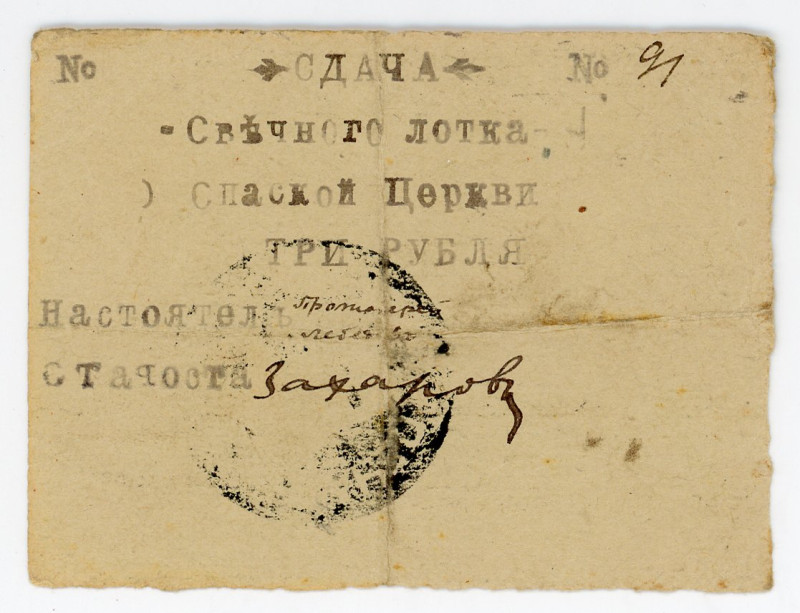 № СДАЧА № 91
-Свѣчного лотка-
) Спаской Церкви
ТРИ РУБЛЯ
Настоятель Протоиерей
Стачоста Захаровъ